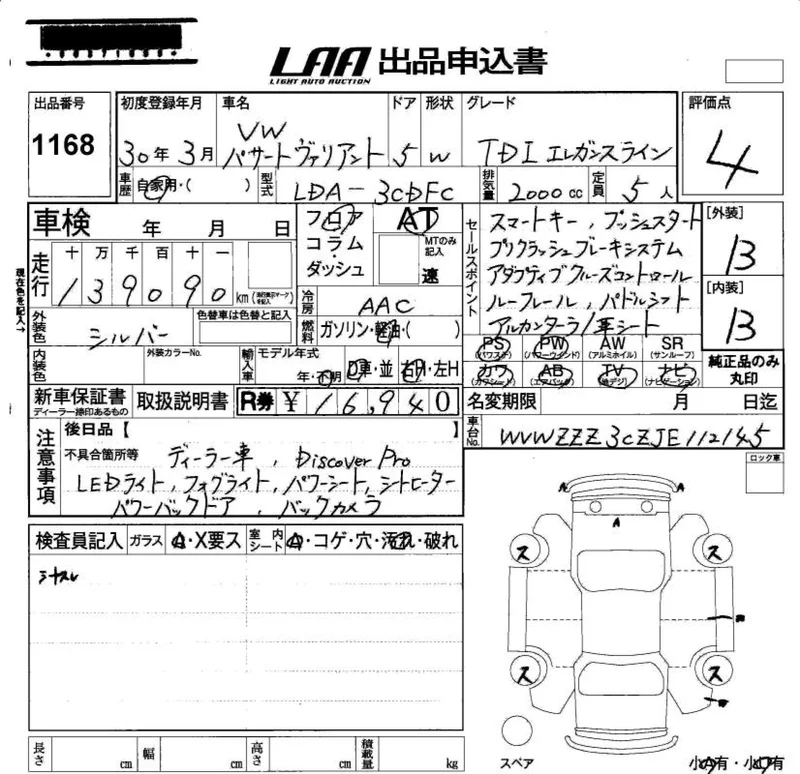 LAA 出品申込書
LIGHT AUTO AUCTION
出品番号 初度登録年月 車名 ドア 形状 グレード 評価点
1168 30年 3月 VW パサートヴァリアント 5 W TDI エレガンスライン 4
車歴 自家用・( ) 型式 LDA-3CDFC 排気量 2000cc 定員 5人
車検 年 月 日
走行 十 万 千 百 十 一
139090 km
現在色を記入→
外装色 シルバー 色替車は色替と記入
内装色 外装カラーNo.
輸入車 モデル年式 年・不明 D車・並 右H・左H
フロア コラム・ダッシュ AT MTのみ記入 速
冷房 AAC
燃料 ガソリン・軽油・( )
セールスポイント
スマートキー, プッシュスタート
プリクラッシュブレーキシステム
アダクティブクルーズコントロール
ルーフレール, パドルシフト
アルカンターラ/革シート
[外装] B
[内装] B
PS PW AW SR
(パワステ) (パワーウインド) (アルミホイル) (サンルーフ)
カワ AB TV ナビ
(カワシート) (エアバック) (地デジ) (ナビゲーション)
純正品のみ丸印
新車保証書 ディーラー捺印あるもの 取扱説明書 R券 ¥16,940
名変期限 月 日迄
車台No. WVWZZZ3CZJE112145
注意事項
後日品【 】
不具合箇所等 ディーラー車, Discover Pro
LEDライト, フォグライト, パワーシート, シートヒーター
パワーバックドア, バックカメラ
ロック車
検査員記入 ガラス A・X要ス 室内シート A・コゲ・穴・汚れ・破れ
シナスレ
A A
A
ス ス
ス ス
スペア
小A有・小U有
長さ cm 幅 cm 高さ cm 積載量 kg